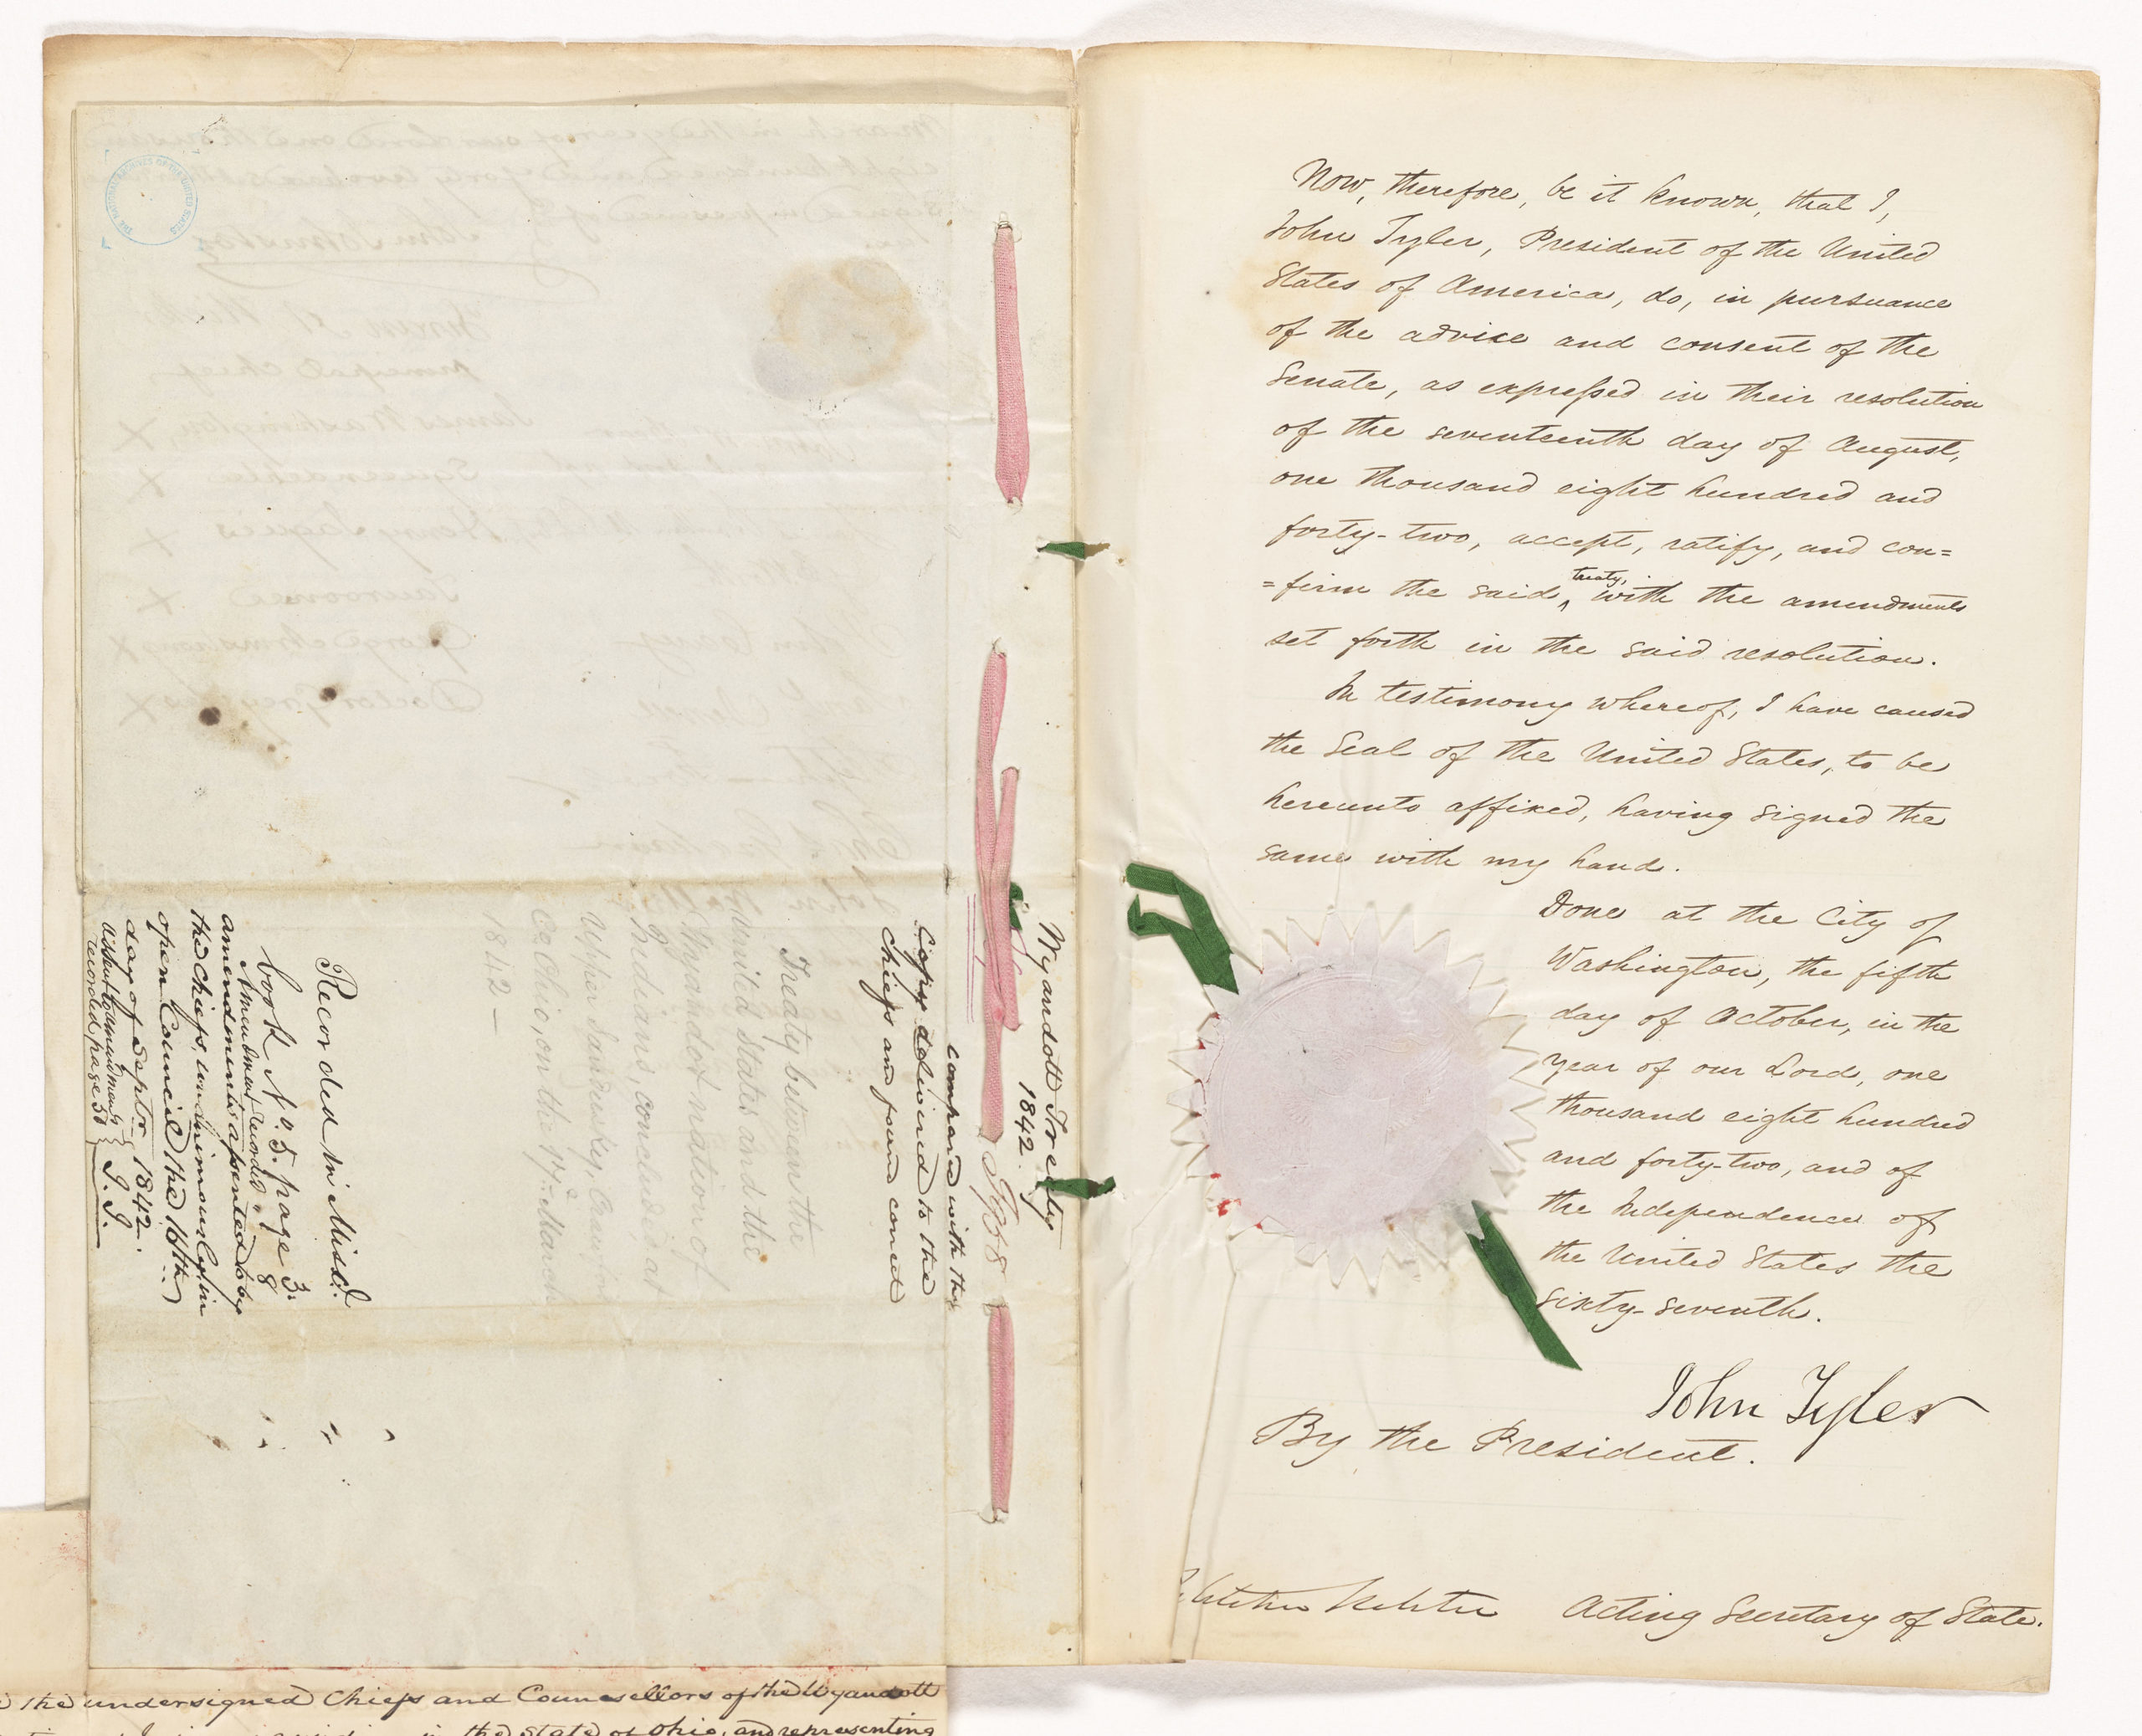 Now, therefore, be it known, that I,
John Tyler, President of the United
States of America, do, in pursuance
of the advice and consent of the
Senate, as expressed in their resolution
of the seventeenth day of August,
one thousand eight hundred and
forty-two, accept, ratify, and con=
=firm the said treaty, with the amendments
set forth in the said resolution.
In testimony whereof, I have caused
the Seal of the United States, to be
hereunto affixed, having signed the
same with my hand.
Done at the City of
Washington, the fifth
day of October, in the
year of our Lord, one
thousand eight hundred
and forty-two, and of
the Independence of
the United States the
sixty-seventh.
John Tyler
By the President.
Fletcher Webster Acting Secretary of State.
Wyandott Treaty
1842.
compared with the
Copy delivered to the
chiefs and found correct
Treaty between the
United States and the
Wyandot nation of
Indians, concluded at
Upper Sandusky, Crawford
Co Ohio, on the 17th March
1842 —
Recorded in Miscl.
book No. 5. page 3.
Amendment recorded, " 8
amendments assented to by
the chiefs, unanimously in
open Council the 16th
day of Septr 1842.
assent to amendments
recorded, page 50
J. J.
THE NATIONAL ARCHIVES OF THE UNITED STATES
the undersigned Chiefs and Counsellors of the Wyandott
in the State of Ohio, and representing